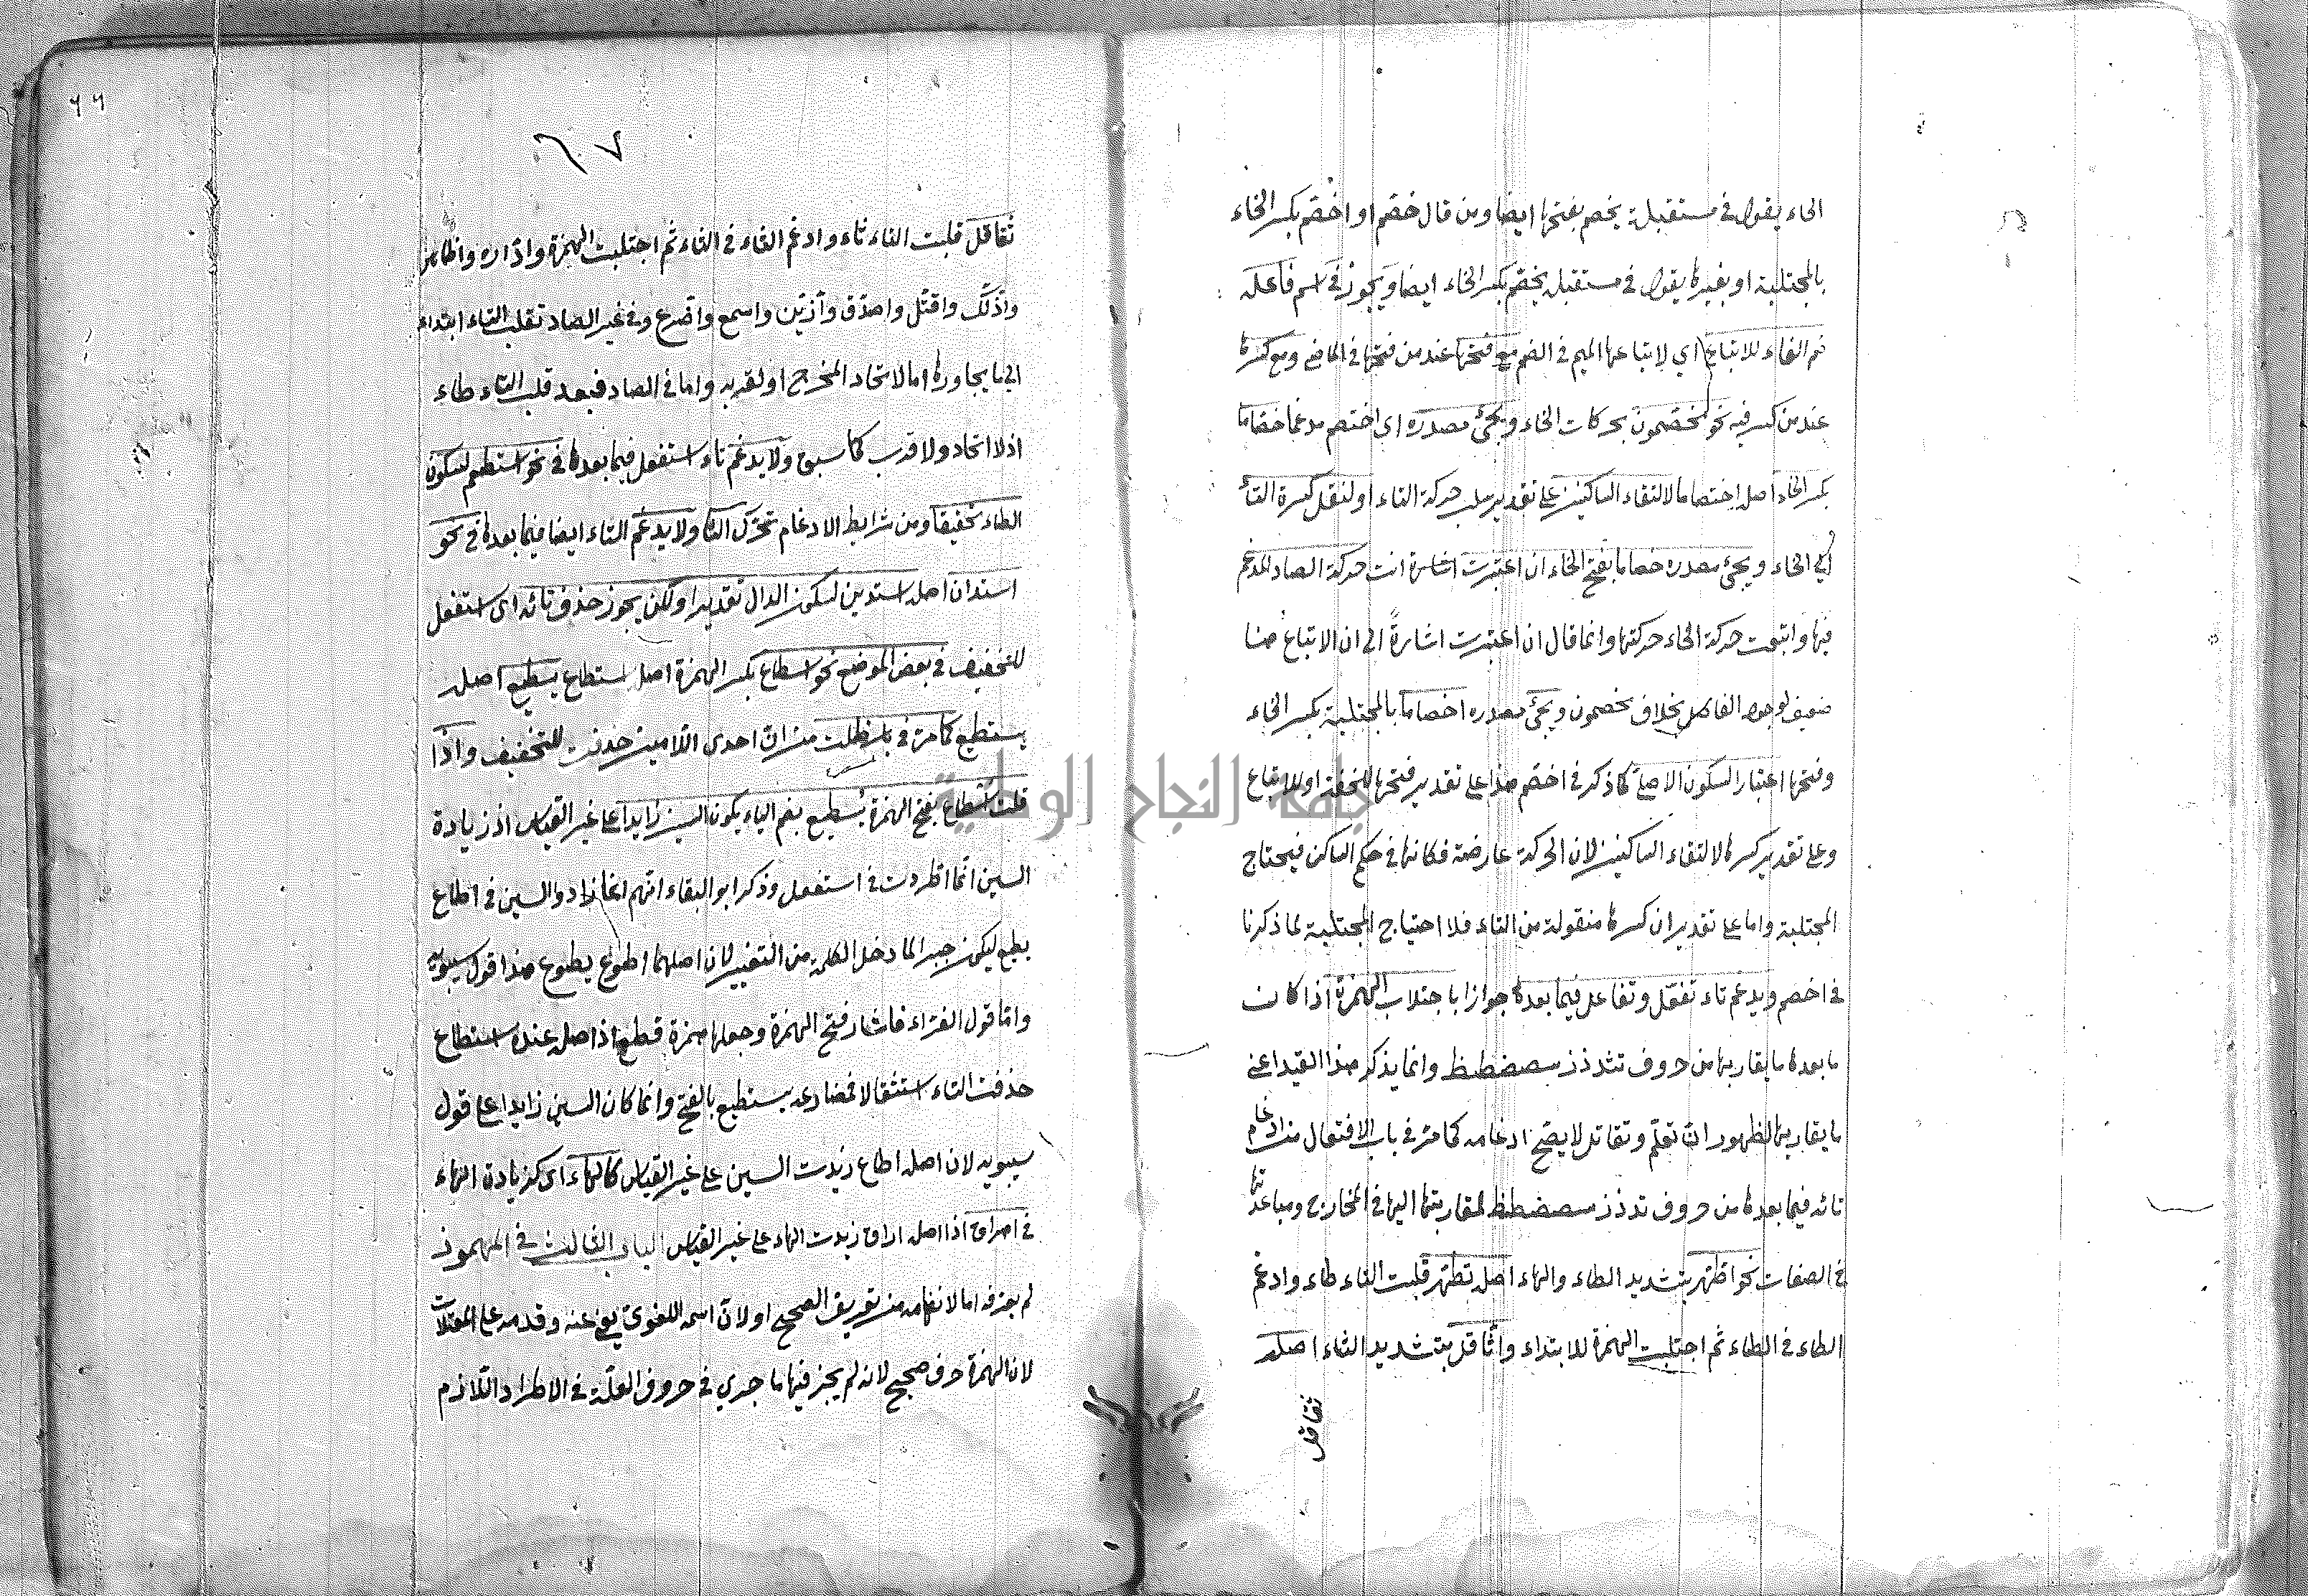 الخاء يقول في مستقبله يخصم بفتحها ايضا ومن قال خصم او اخصم بكسر الخاء
بالمجتلبة او بغيرها يقول في مستقبله يخصم بكسر الخاء ايضا ويجوز في اسم فاعله
ضم الفاء للاتباع اي لاتباعها الميم في الضم مع فتحها عند من فتحها في الماضي ومع كسرها
عند من كسر فيه نحو مخصمون بحركات الخاء ويجئ مصدره اى اختصم مدغما خصاما
بكسر الخاء اصله اختصاما لالتقاء الساكنين على تقدير سلب حركة التاء او لنقل كسرة التاء
الي الخاء ويجئ مصدره خصاما بفتح الخاء ان اعتبرت انت حركة الصاد المدغم
فيها واتبعت حركة الخاء حركتها وانما قال ان اعتبرت اشارةً الى ان الاتباع هنا
ضعيف لوجود الفاصل بخلاف مخصمون ويجئ مصدره اخصاما بالمجتلبة بكسر الخاء
وفتحها اعتبار السكون الاصلي كما ذكر في اخصم هذا على تقدير فتحها للخفة او للاتباع
وعلى تقدير كسرها لالتقاء الساكنين لان الحركة عارضة فكانها في حكم الساكن فيحتاج
المجتلبة واما على تقدير ان كسرها منقولة من التاء فلا احتياج المجتلبة لما ذكرنا
في اخصم ويدغم تاء تفعّل وتفاعل فيما بعدها جوازا باجتلاب الهمزة اذا كان
ما بعدها ما يقاربها من حروف تثدذز سصضطظ وانما يذكر هذا القيد اعني
ما يقاربها لظهور ان تعلّم وتقاتل لا يصح ادغامه كما مر في باب الافتعال من ادغام
تائه فيما بعدها من حروف تدذز سصضطظ لمقاربتها اليها في المخارج ومباعدتها
في الصفات نحو اطّهر بتشديد الطاء والهاء اصله تطهر قلبت التاء طاء وادغم
الطاء في الطاء ثم اجتلبت الهمزة للابتداء واثّاقل بتشديد الثاء اصله
تثاقل
٦٦
٦٧
تثاقل قلبت التاء ثاء وادغم الثاء في الثاء ثم اجتلبت الهمزة وادّاره
واذّكّر واقتّل واصدّق وازّيّن واسمع واضّرع وفي غير الصاد تقلب التاء ابتداء
الي ما يجاورها اما لاتحاد المخرج او لقربه واما في الصاد فبعد قلب التاء طاء
اذ لا اتحاد ولا قرب كما سبق ولا يدغم تاء استفعل فيما بعدها في نحو استطعم لسكون
الطاء تحقيقا ومن شرايط الادغام تحرّك الثاني ولا يدغم التاء ايضا فيما بعدها في نحو
استدان اصله استدين لسكون الدال تقديرا ولكن يجوز حذف تائه اى استفعل
للتخفيف في بعض المواضع نحو اسطاع بكسر الهمزة اصله استطاع يسطيع اصله
يستطيع كما مر في باب ظلت من ان احدى اللامين حذفت للتخفيف واذا
قلت اسطاع بفتح الهمزة يُسطيع بضم الياء يكون السين زايدا على غير القياس اذ زيادة
السين انما اطردت في استفعل وذكر ابو البقاء انهم انما زادوا السين في اطاع
يطيع ليكون جبرا لما دخل الكلمة من التغيير لان اصلهما اطوع يطوع هذا قول سيبويه
واما قول الفراء فاشار فتح الهمزة وجعلها همزة قطع اذ اصله عنده استطاع
حذفت التاء استثقالا فمضارعه يستطيع بالفتح وانما كان السين زايدا على قول
سيبويه لان اصله اطاع زيدت السين على غير القياس كالهاء اى كزيادة الهاء
في اهراق اذ اصله اراق زيدت الهاء على غير القياس الباب الثالث في المهموز
لم يعرفه اما لانفهامه من تعريف الصحيح او لانّ اسمه اللغوي يغني عنه وقدمه على المعتلات
لان الهمزة حرف صحيح لانه لم يجز فيها ما جرى في حروف العلّة في الاطراد اللازم